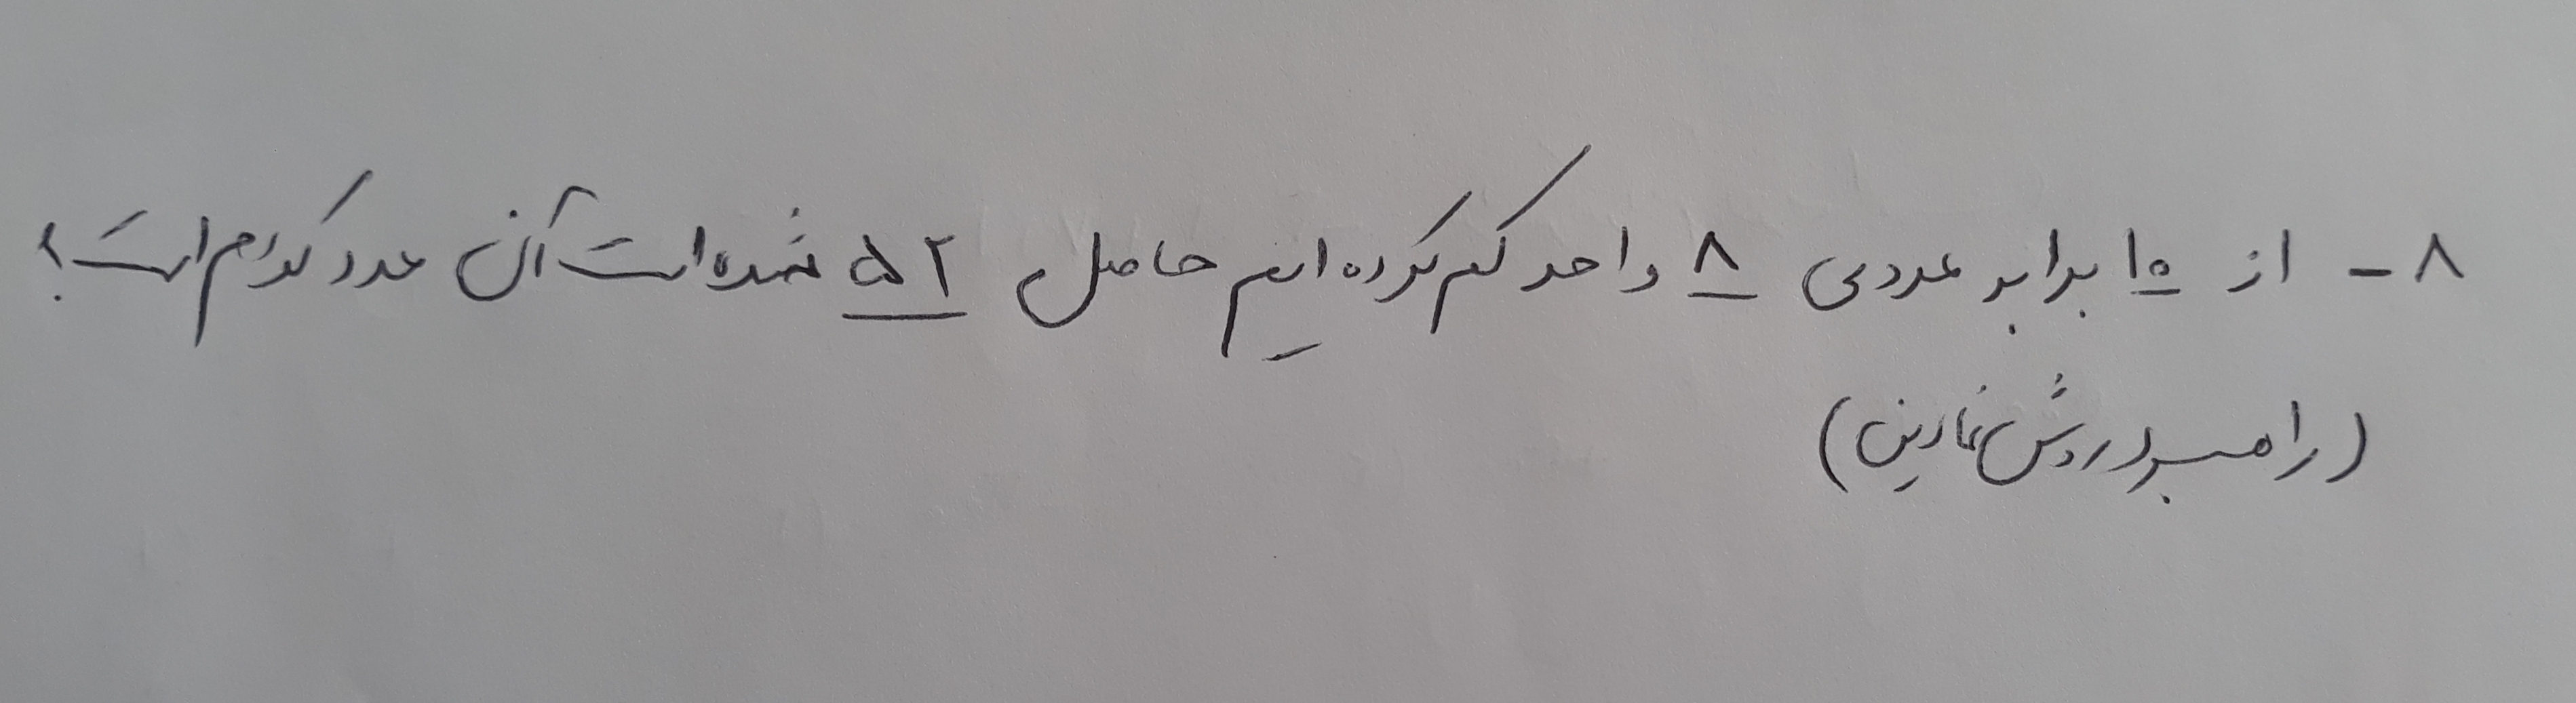 ۸- از ۱۰ برابر عددی ۸ واحد کم کرده ایم حاصل ۵۲ شده است آن عدد کدام است؟
(راهبرد روش نمادین)